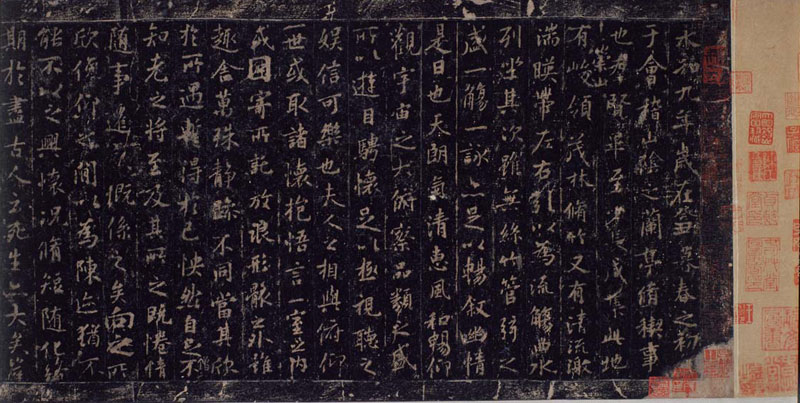 永和九年歲在癸丑暮春之初
于會稽山陰之蘭亭脩稧事
也羣賢畢至少長咸集此地
有崇山峻領茂林脩竹又有清流激
湍暎帶左右引以為流觴曲水
列坐其次雖無絲竹管弦之
盛一觴一詠亦足以暢敘幽情
是日也天朗氣清惠風和暢仰
觀宇宙之大俯察品類之盛
所以遊目騁懷足以極視聽之
娛信可樂也夫人之相與俯仰
一世或取諸懷抱悟言一室之內
或因寄所託放浪形骸之外雖
趣舍萬殊靜躁不同當其欣
於所遇暫得於己怏然自足不
知老之將至及其所之既惓情
隨事遷感慨係之矣向之所
欣俛仰之間以為陳迹猶不
能不以之興懷況脩短隨化終
期於盡古人云死生亦大矣豈